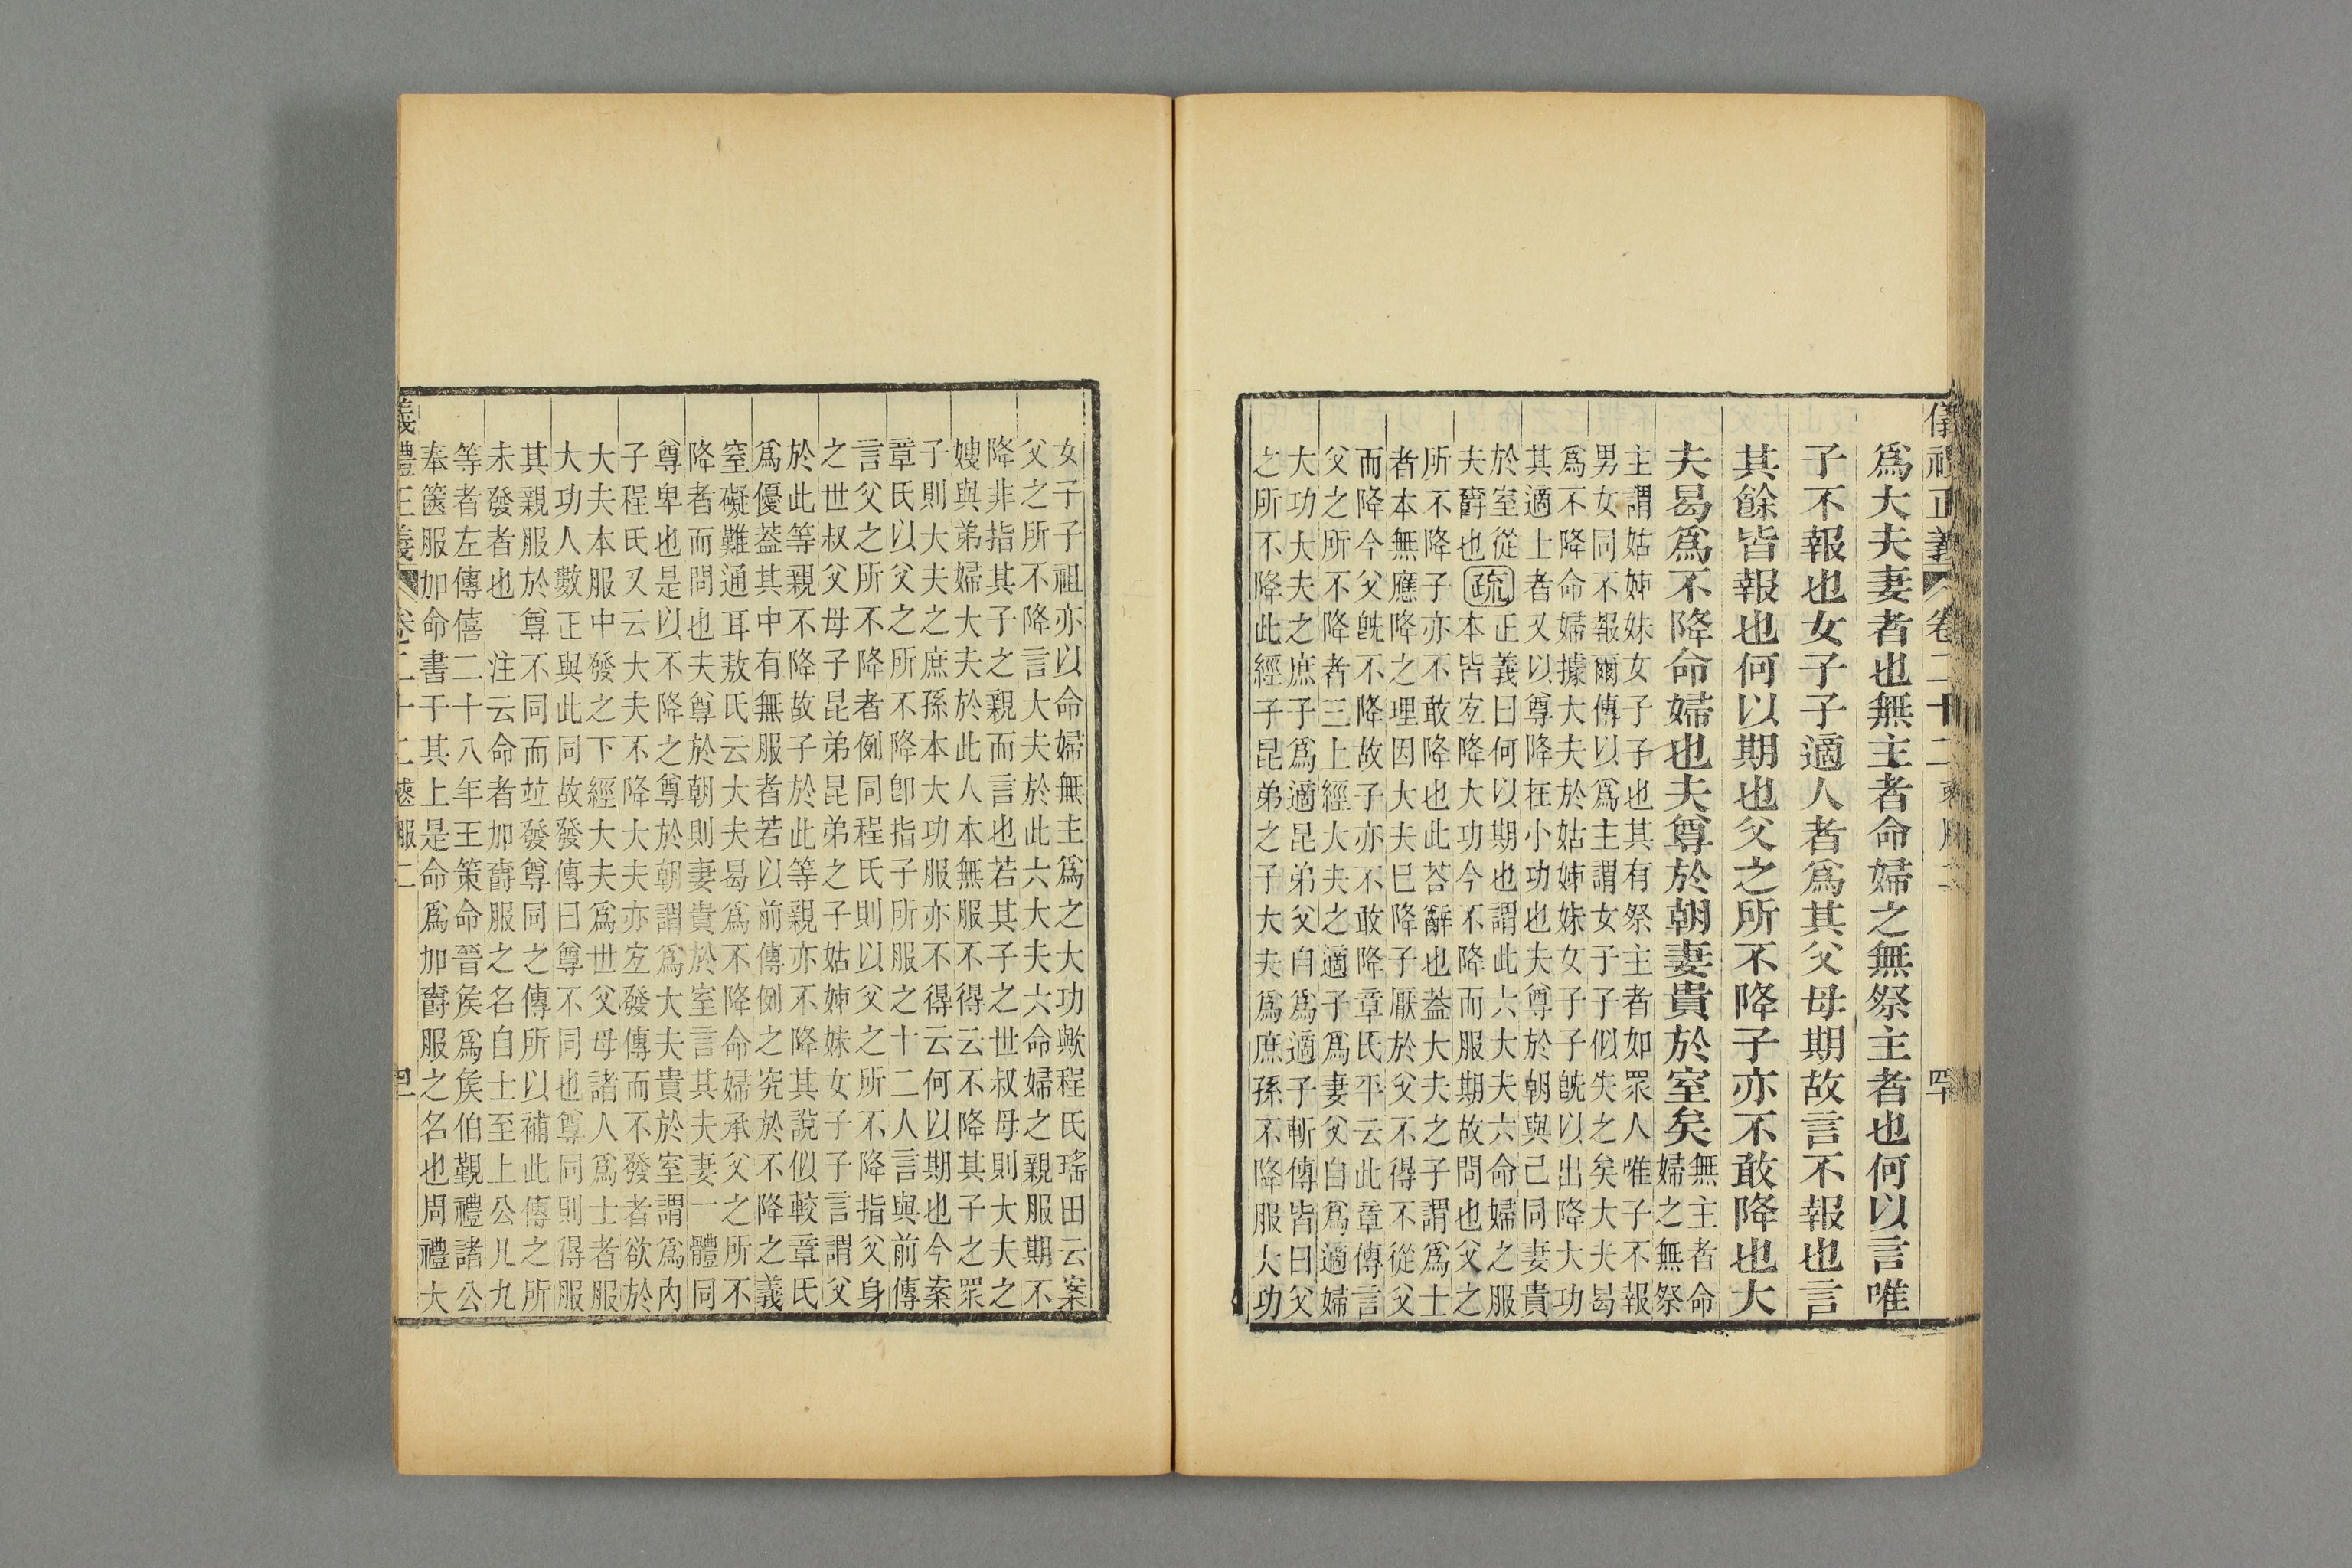 儀禮正義 卷二十二 喪服二 四十
爲大夫妻者也無主者命婦之無祭主者也何以言唯
子不報也女子子適人者爲其父母期故言不報也言
其餘皆報也何以期也父之所不降子亦不敢降也大
夫曷爲不降命婦也夫尊於朝妻貴於室矣
無主者命
婦之無祭
主謂姑姊妹女子子也其有祭主者如眾人唯子不報
男女同不報爾傳以爲主謂女子子似失之矣大夫曷
爲不降命婦據大夫於姑姊妹女子子旣以出降大功
其適士者又以尊降在小功也夫尊於朝與己同妻貴
於室從
夫爵也
疏
正義曰何以期也謂此六大夫六命婦之服
本皆宐降大功今不降而服期故問也父之
所不降子亦不敢降也此荅辭也葢大夫之子謂爲士
者本無應降之理因大夫已降子厭於父不得不從父
而降今父旣不降故子亦不敢降章氏平云此章傳言
父之所不降者三上經大夫之適子爲妻父自爲適婦
大功大夫之庶子爲適昆弟父自爲適子斬傳皆曰父
之所不降此經子昆弟之子大夫爲庶孫不降服大功
女子子祖亦以命婦無主爲之大功歟程氏瑤田云案
父之所不降言大夫於此六大夫六命婦之親服期不
降非指其子之親而言也若其子之世叔母則大夫之
嫂與弟婦大夫於此人本無服不得云不降其子之眾
子則大夫之庶孫本大功服亦不得云何以期也今案
章氏以父之所不降卽指子所服之十二人言與前傳
言父之所不降者例同程氏則以父之所不降指父身
之世叔父母子昆弟昆弟之子姑姊妹女子子言謂父
於此等親不降故子於此等親亦不降其說似較章氏
爲優葢其中有無服者若以前傳例之究於不降之義
窒礙難通耳敖氏云大夫曷爲不降命婦承父之所不
降者而問也夫尊於朝則妻貴於室言其夫妻一體同
尊卑也是以不降之尊於朝謂爲大夫貴於室謂爲內
子程氏又云大夫不降大夫亦宐發傳而不發者欲於
大夫本服中發之下經大夫爲世父母諸人爲士者服
大功人數正與此同故發傳曰尊不同也尊同則得服
其親服於尊不同而竝發尊同之傳所以補此傳之所
未發者也 注云命者加爵服之名自士至上公凡九
等者左傳僖二十八年王策命晉矦爲矦伯覲禮諸公
奉篋服加命書于其上是命爲加爵服之名也周禮大
義禮正義 卷二十二 喪服二